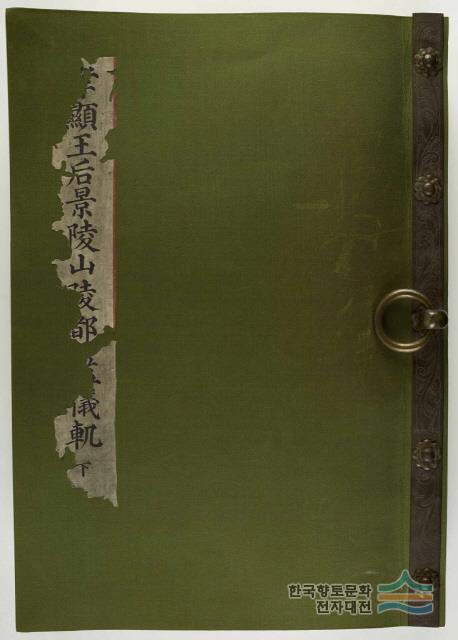 孝顯王后景陵山陵都儀軌 下
한국향토문화
전자대전